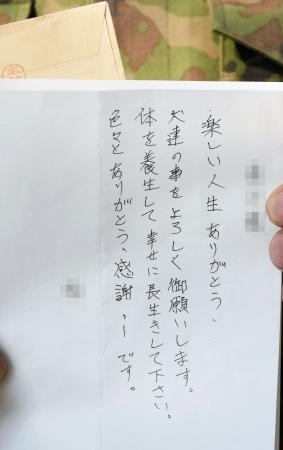 楽しい人生ありがとう、
犬達の事をよろしく御願いします。
体を養生して幸せに長生きして下さい。
色々とありがとう、感謝、〜です。